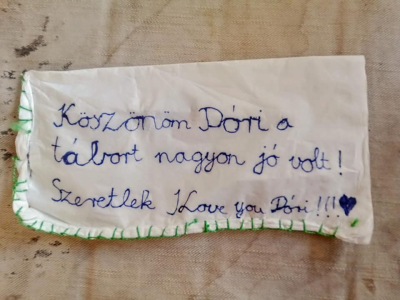 Köszönöm Dóri a
tábort nagyon jó volt!
Szeretlek I Love you Dóri!!!♥